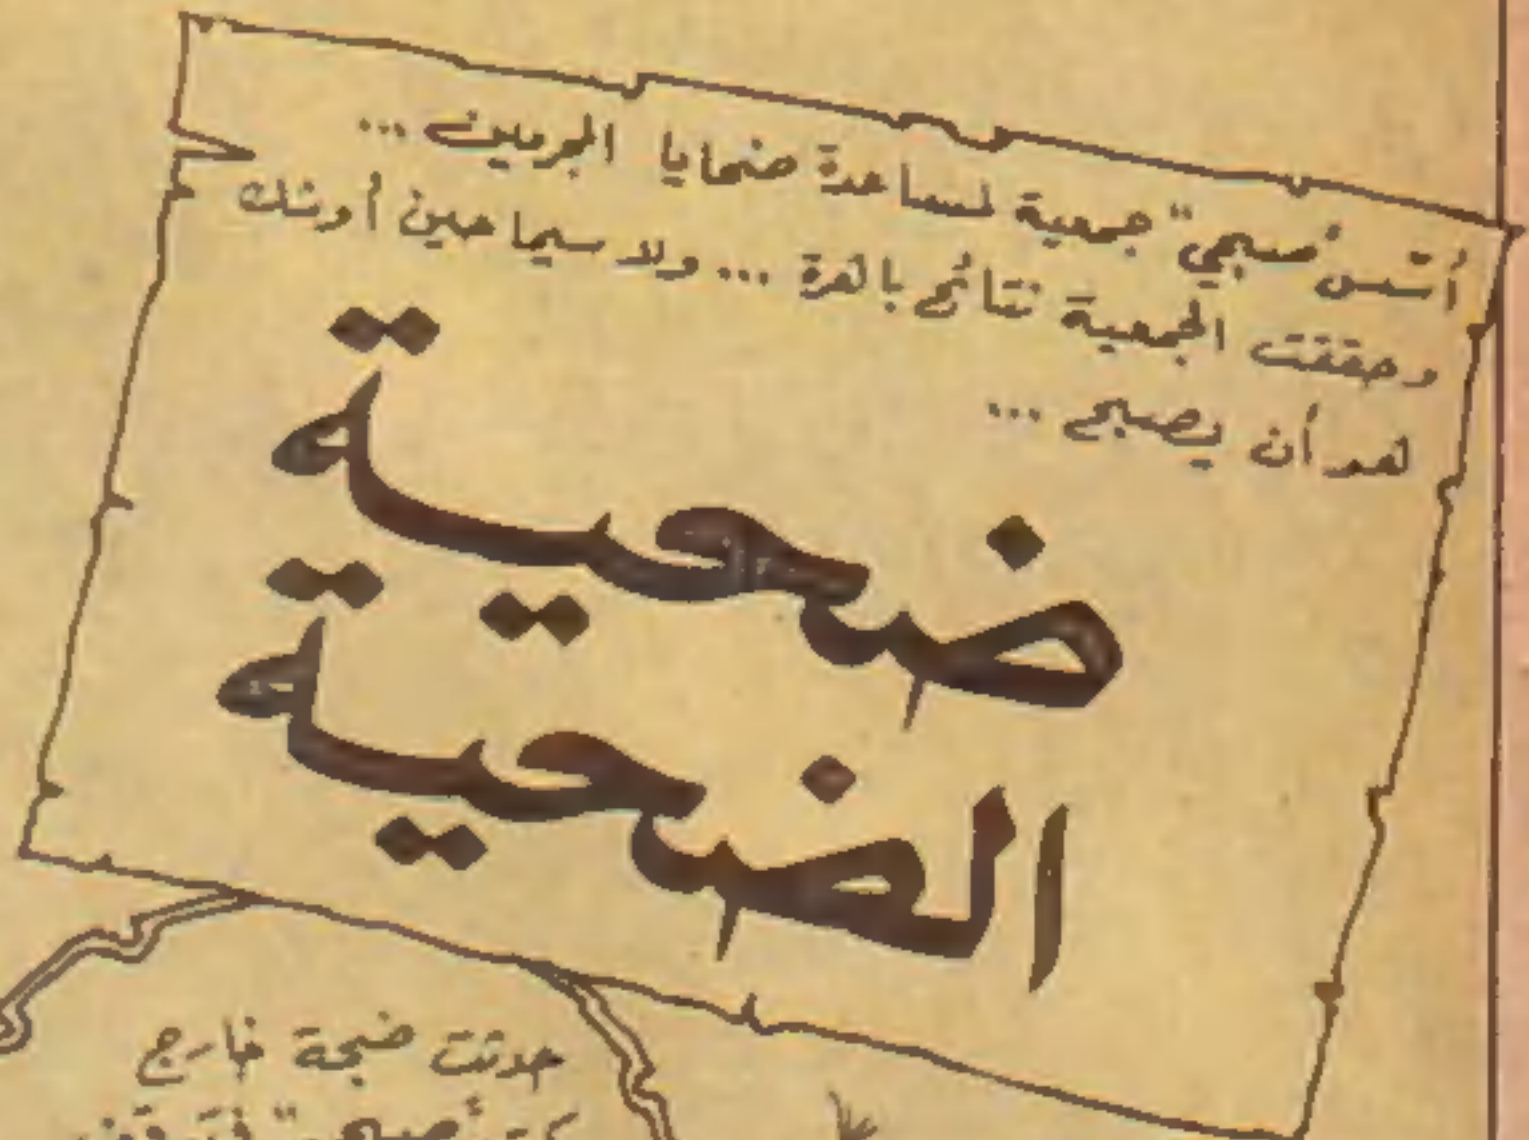 أسّس "صبحي" جمعية لمساعدة ضحايا المجرمين ...
وحققت الجمعية نتائج باهرة ... ولا سيما حين أوشك
هو أن يصبح ...
ضحية
الضحية
حدثت ضجة خارج
"صبحي" فتوقف